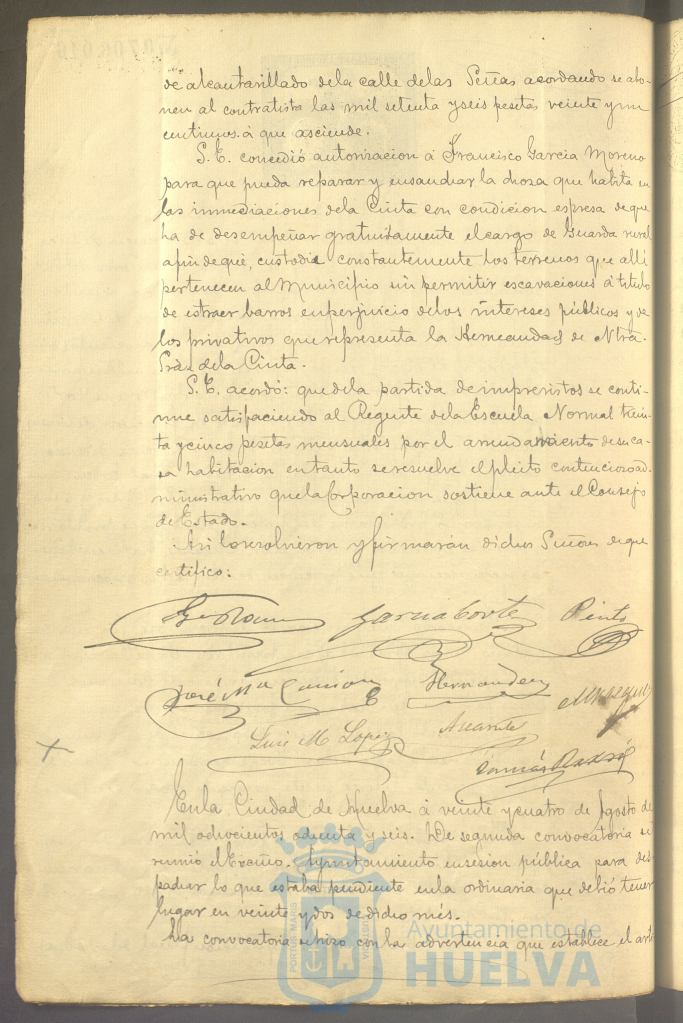 de alcantarillado dela calle delas Señas acordando se abo-
nen al contratista las mil setenta y seis pesetas veinte y un
centimos á que asciende.
S. E. concedió autorizacion á Francisco Garcia Moreno
para que pueda reparar y ensanchar la choza que habita en
las inmediaciones dela Cinta con condicion espresa de que
ha de desempeñar gratuitamente el cargo de Guarda rural
afin de que, custodie constantemente los terrenos que alli
pertenecen al Municipio sin permitir escavaciones á titulo
de estraer barros en perjuicio delos intereses públicos y de
los privativos que representa la Hermandad de Ntra.
Sra. dela Cinta.
S. E. acordó: que dela partida de imprevistos se conti-
nue satisfaciendo al Regente dela Escuela Normal trein-
ta y cinco pesetas mensuales por el arrendamiento de su ca-
sa habitacion en tanto se resuelve el pleito contencioso ad-
ministrativo que la Corporacion sostiene ante el Consejo
de Estado.
Asi lo resolvieron y firmarán dichos Señores de que
certifico:
Garcia Cortes Pinto
José Mª Hernandez
Luis M. Lopez
Tomás
En la Ciudad de Huelva á veinte y cuatro de Agosto de
mil ochocientos ochenta y seis. De segunda convocatoria se
reunió el Excmo. Ayuntamiento en sesion pública para des-
pachar lo que estaba pendiente en la ordinaria que debió tener
lugar en veinte y dos de dicho més.
La convocatoria se hizo con la advertencia que establece el arti-
Ayuntamiento de
HUELVA